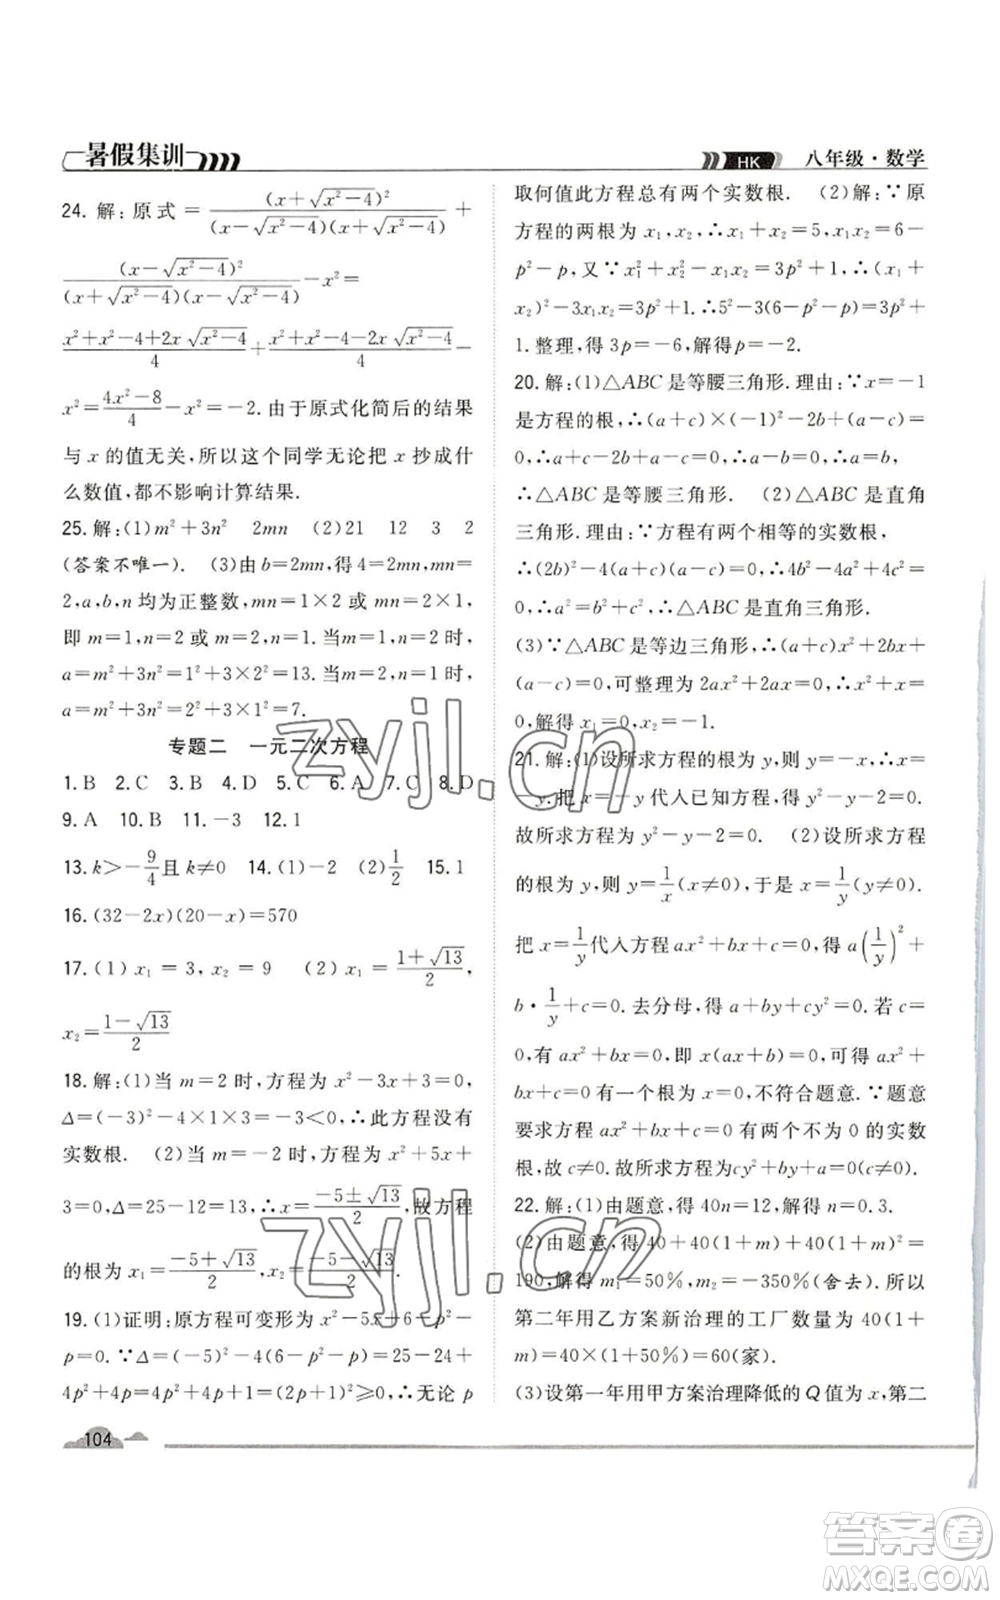 暑假集训
HK 八年级·数学
24. 解:原式=(x+√(x²-4))²/((x-√(x²-4))(x+√(x²-4)))+
(x-√(x²-4))²/((x+√(x²-4))(x-√(x²-4)))-x²=
(x²+x²-4+2x√(x²-4))/4+(x²+x²-4-2x√(x²-4))/4-
x²=(4x²-8)/4-x²=-2.由于原式化简后的结果
与 x 的值无关,所以这个同学无论把 x 抄成什
么数值,都不影响计算结果.
25.解:(1)m²+3n² 2mn (2)21 12 3 2
(答案不唯一). (3)由b=2mn,得 4=2mn,mn=
2,a,b,n 均为正整数,mn=1×2 或 mn=2×1,
即 m=1,n=2 或 m=2,n=1.当 m=1,n=2 时,
a=m²+3n²=1²+3×2²=13.当 m=2,n=1 时,
a=m²+3n²=2²+3×1²=7.
专题二 一元二次方程
1.B 2.C 3.B 4.D 5.C 6.A 7.C 8.D
9.A 10.B 11.-3 12.1
13.k>-9/4且 k≠0 14.(1)-2 (2)1/2 15.1
16.(32-2x)(20-x)=570
17.(1) x₁=3,x₂=9 (2)x₁=(1+√13)/2,
x₂=(1-√13)/2
18.解:(1)当 m=2 时,方程为 x²-3x+3=0,
Δ=(-3)²-4×1×3=-3<0,∴此方程没有
实数根. (2)当 m=-2 时,方程为 x²+5x+
3=0,Δ=25-12=13,∴x=(-5±√13)/2,故方程
的根为 x₁=(-5+√13)/2,x₂=(-5-√13)/2.
19.(1)证明:原方程可变形为 x²-5x+6-p²-
p=0.∵Δ=(-5)²-4(6-p²-p)=25-24+
4p²+4p=4p²+4p+1=(2p+1)²≥0,∴无论 p
取何值此方程总有两个实数根. (2)解:∵原
方程的两根为 x₁,x₂,∴x₁+x₂=5,x₁x₂=6-
p²-p,又∵x₁²+x₂²-x₁x₂=3p²+1,∴(x₁+
x₂)²-3x₁x₂=3p²+1.∴5²-3(6-p²-p)=3p²+
1.整理,得 3p=-6,解得p=-2.
20.解:(1)△ABC 是等腰三角形.理由:∵x=-1
是方程的根,∴(a+c)×(-1)²-2b+(a-c)=
0,∴a+c-2b+a-c=0,∴a-b=0,∴a=b,
∴△ABC 是等腰三角形. (2)△ABC 是直角
三角形.理由:∵方程有两个相等的实数根,
∴(2b)²-4(a+c)(a-c)=0,∴4b²-4a²+4c²=
0,∴a²=b²+c²,∴△ABC 是直角三角形.
(3)∵△ABC 是等边三角形,∴(a+c)x²+2bx+
(a-c)=0,可整理为 2ax²+2ax=0,∴x²+x=
0,解得 x₁=0,x₂=-1.
21.解:(1)设所求方程的根为 y,则 y=-x,∴x=
-y.把 x=-y 代人已知方程,得 y²-y-2=0.
故所求方程为 y²-y-2=0. (2)设所求方程
的根为 y,则 y=1/x(x≠0),于是 x=1/y(y≠0).
把 x=1/y代入方程 ax²+bx+c=0,得 a(1/y)²+
b·1/y+c=0.去分母,得 a+by+cy²=0.若 c=
0,有 ax²+bx=0,即 x(ax+b)=0,可得 ax²+
bx+c=0 有一个根为 0,不符合题意.∵题意
要求方程 ax²+bx+c=0 有两个不为 0 的实数
根,故 c≠0.故所求方程为cy²+by+a=0(c≠0).
22.解:(1)由题意,得 40n=12,解得 n=0.3.
(2)由题意,得 40+40(1+m)+40(1+m)²=
190,解得 m₁=50%,m₂=-350%(舍去).所以
第二年用乙方案新治理的工厂数量为 40(1+
m)=40×(1+50%)=60(家).
(3)设第一年用甲方案治理降低的 Q 值为 x,第二
104
zyjl.cn
zyjl.cn
答案卷
MXQE.COM